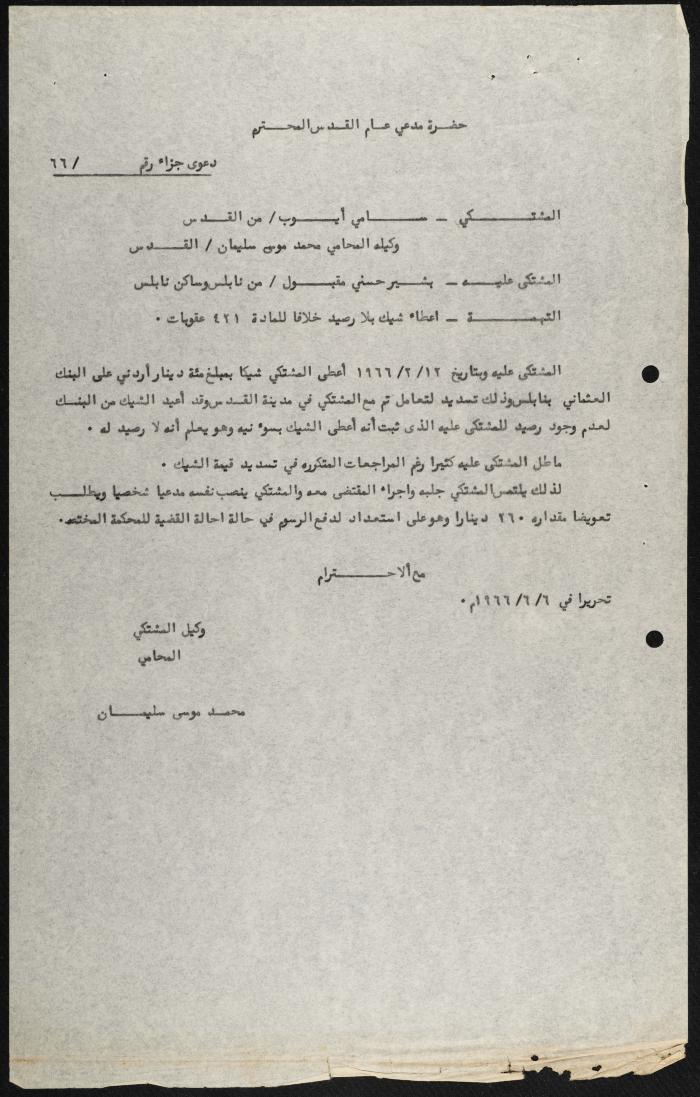 حضرة مدعي عام القدس المحترم
دعوى جزاء رقم / ٦٦
المشتكي ـ سامي أيوب / من القدس
وكيله المحامي محمد موسى سليمان / القدس
المشتكى عليه ـ بشير حسني مقبول / من نابلس وساكن نابلس
التهمة ـ اعطاء شيك بلا رصيد خلافا للمادة ٤٢١ عقوبات ٠
المشتكى عليه وبتاريخ ١٢ /٢ /١٩٦٦ أعطى المشتكي شيكا بمبلغ مئة دينار أردني على البنك
العثماني بنابلس وذلك تسديد لتعامل تم مع المشتكي في مدينة القدس وقد أعيد الشيك من البنك
لعدم وجود رصيد للمشتكى عليه الذى ثبت أنه أعطى الشيك بسوء نيه وهو يعلم أنه لا رصيد له ٠
ماطل المشتكى عليه كثيرا رغم المراجعات المتكرره في تسديد قيمة الشيك ٠
لذلك يلتمس المشتكي جلبه واجراء المقتضى معه والمشتكي ينصب نفسه مدعيا شخصيا ويطلب
تعويضا مقداره ٢٦٠ دينارا وهو على استعداد لدفع الرسوم في حالة احالة القضية للمحكمة المختصه٠
مع ألاحترام
تحريرا في ٦ /٦ /١٩٦٦م٠
وكيل المشتكي
المحامي
محمد موسى سليمان